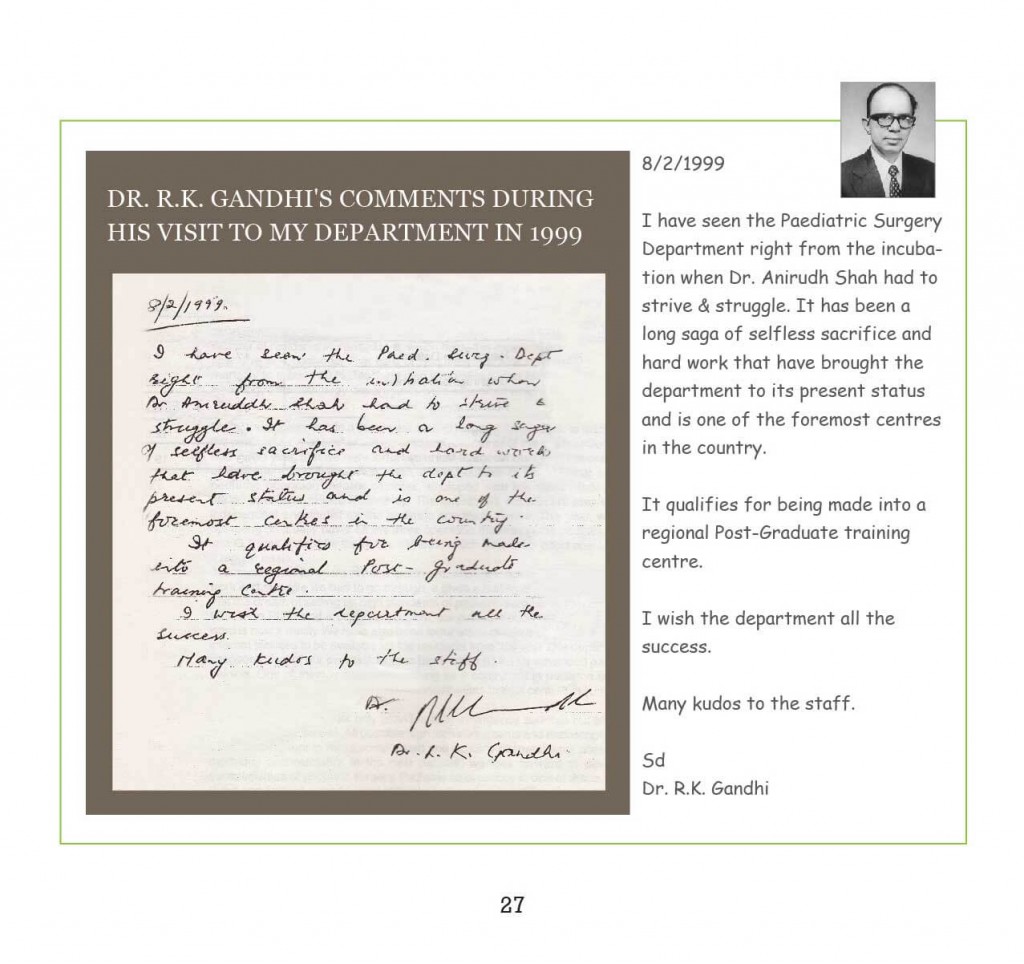 DR. R.K. GANDHI'S COMMENTS DURING
HIS VISIT TO MY DEPARTMENT IN 1999
8/2/1999.
I have seen the Paed. Surg. Dept
right from the when
Dr Aniruddh Shah had to strive &
struggle. It has been a long saga
of selfless sacrifice and hard work
that have brought the dept to its
present status and is one of the
foremost centres in the country.
It qualifies for being made
into a regional Post-graduate
training centre.
I wish the department all the
success.
Many kudos to the staff.
Dr.
Dr. R. K. Gandhi
8/2/1999
I have seen the Paediatric Surgery
Department right from the incuba-
tion when Dr. Anirudh Shah had to
strive & struggle. It has been a
long saga of selfless sacrifice and
hard work that have brought the
department to its present status
and is one of the foremost centres
in the country.
It qualifies for being made into a
regional Post-Graduate training
centre.
I wish the department all the
success.
Many kudos to the staff.
Sd
Dr. R.K. Gandhi
27